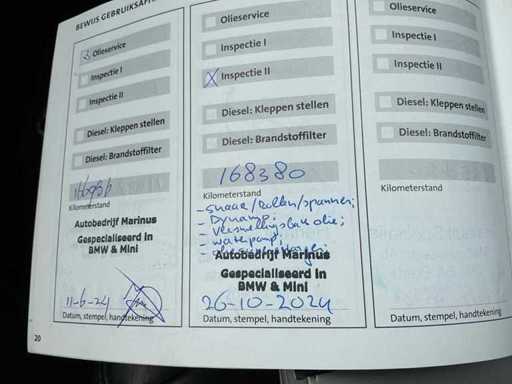 BEWIJS GEBRUIKSAFH
Olieservice
Inspectie I
Inspectie II
Diesel: Kleppen stellen
Diesel: Brandstoffilter
Kilometerstand
Autobedrijf Marinus
Gespecialiseerd in
BMW & Mini
11-6-24
Datum, stempel, handtekening
20
Olieservice
Inspectie I
X Inspectie II
Diesel: Kleppen stellen
Diesel: Brandstoffilter
168380
Kilometerstand
- snaar/rollen/spanner;
- Dynamo;
- Versnellingsbak olie;
- waterpomp;
Autobedrijf Marinus
Gespecialiseerd in
BMW & Mini
26-10-2024
Datum, stempel, handtekening
Olieservice
Inspectie I
Inspectie II
Diesel: Kleppen stellen
Diesel: Brandstoffilter
Kilometerstand
Datum, stempel, handtekening